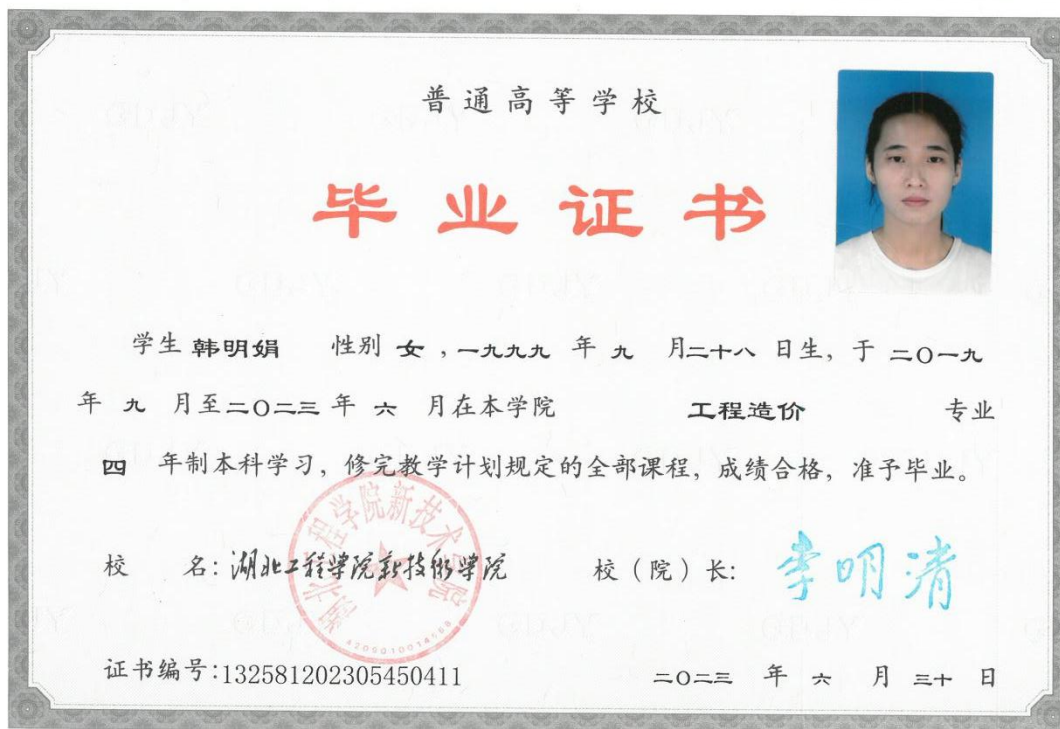 普通高等学校
毕业证书
学生 韩明娟 性别 女 ,一九九九 年 九 月二十八 日生, 于 二〇一九
年 九 月至二〇二三 年 六 月在本学院 工程造价 专业
四 年制本科学习, 修完教学计划规定的全部课程, 成绩合格, 准予毕业。
校 名: 湖北工程学院新技术学院 校(院)长: 李明清
湖北工程学院新技术学院
4209010014568
证书编号:132581202305450411 二〇二三 年 六 月 三十 日